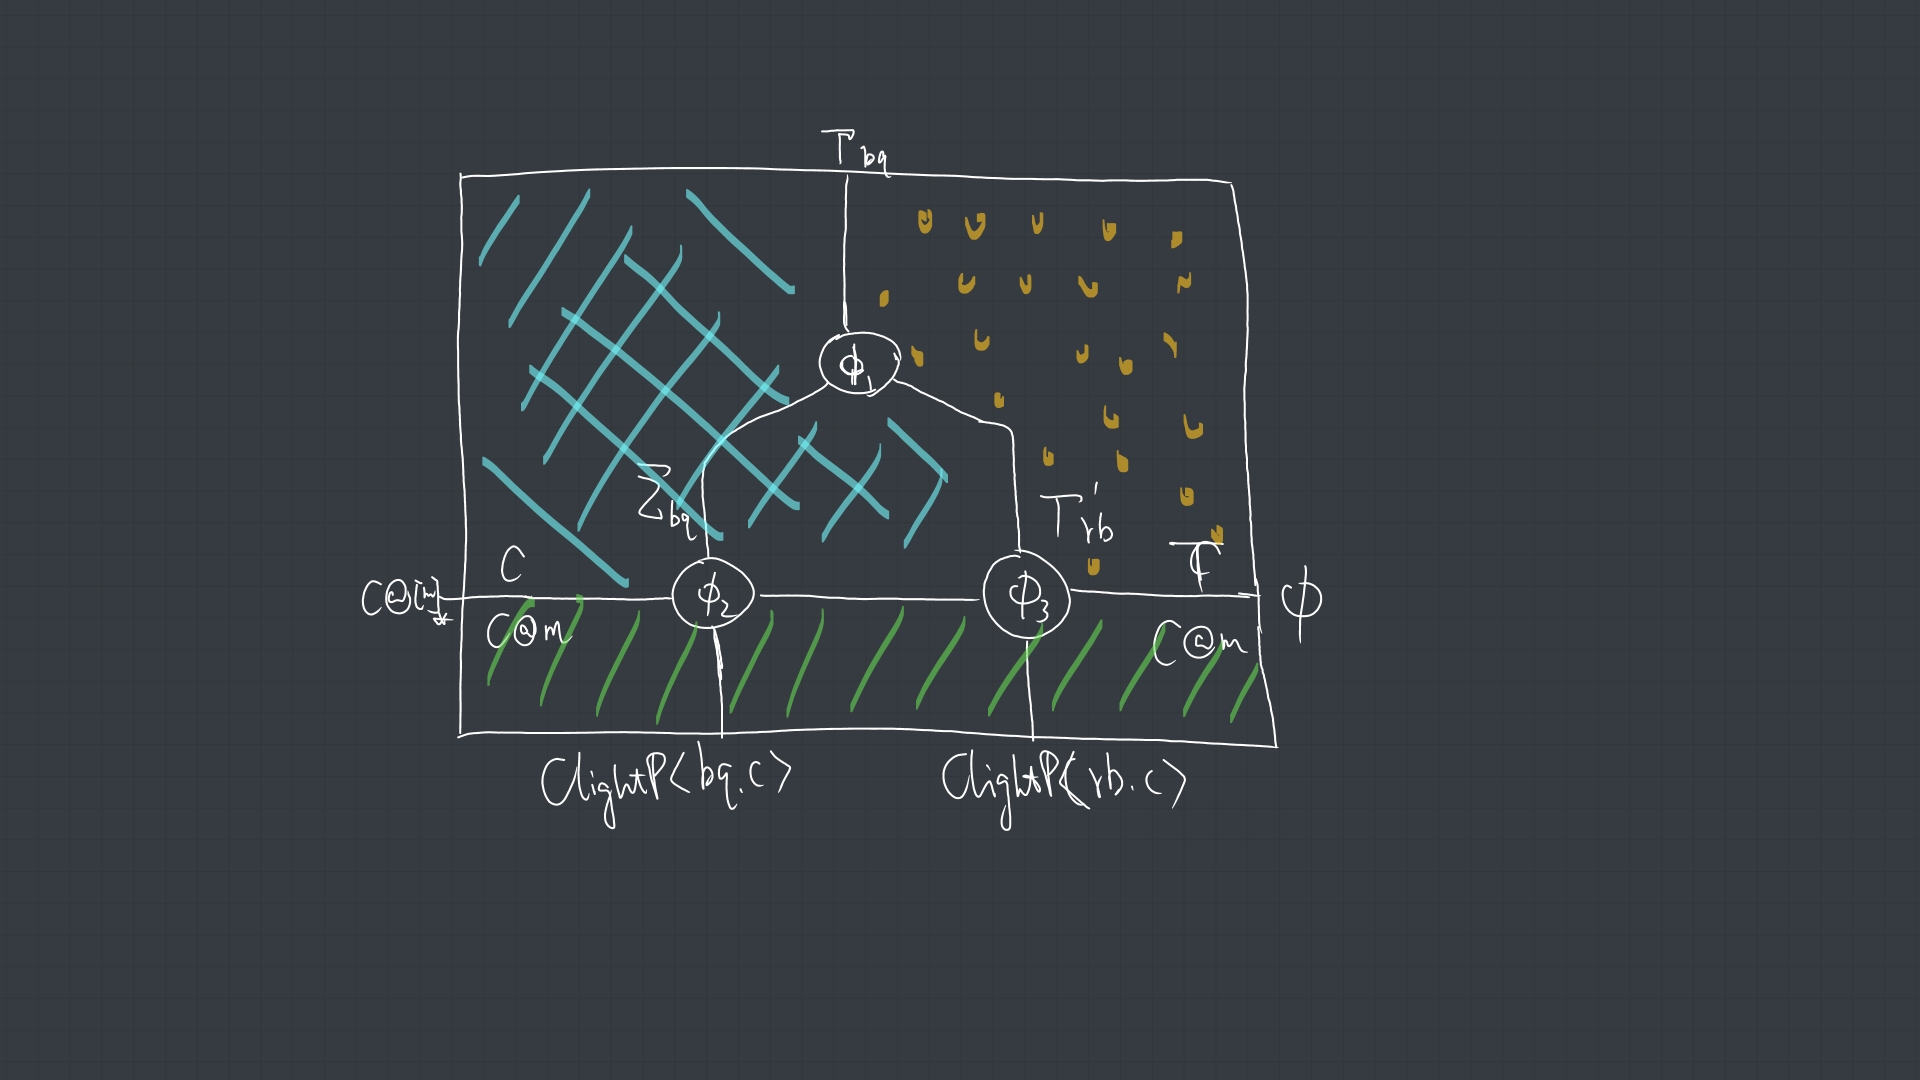 T_bq
ϕ_1
Σ_bq
T'_rb
C
C@[m]
ϕ_2
ϕ_3
ϕ
C@m
C@m
ClightP<bq.c>
ClightP<rb.c>